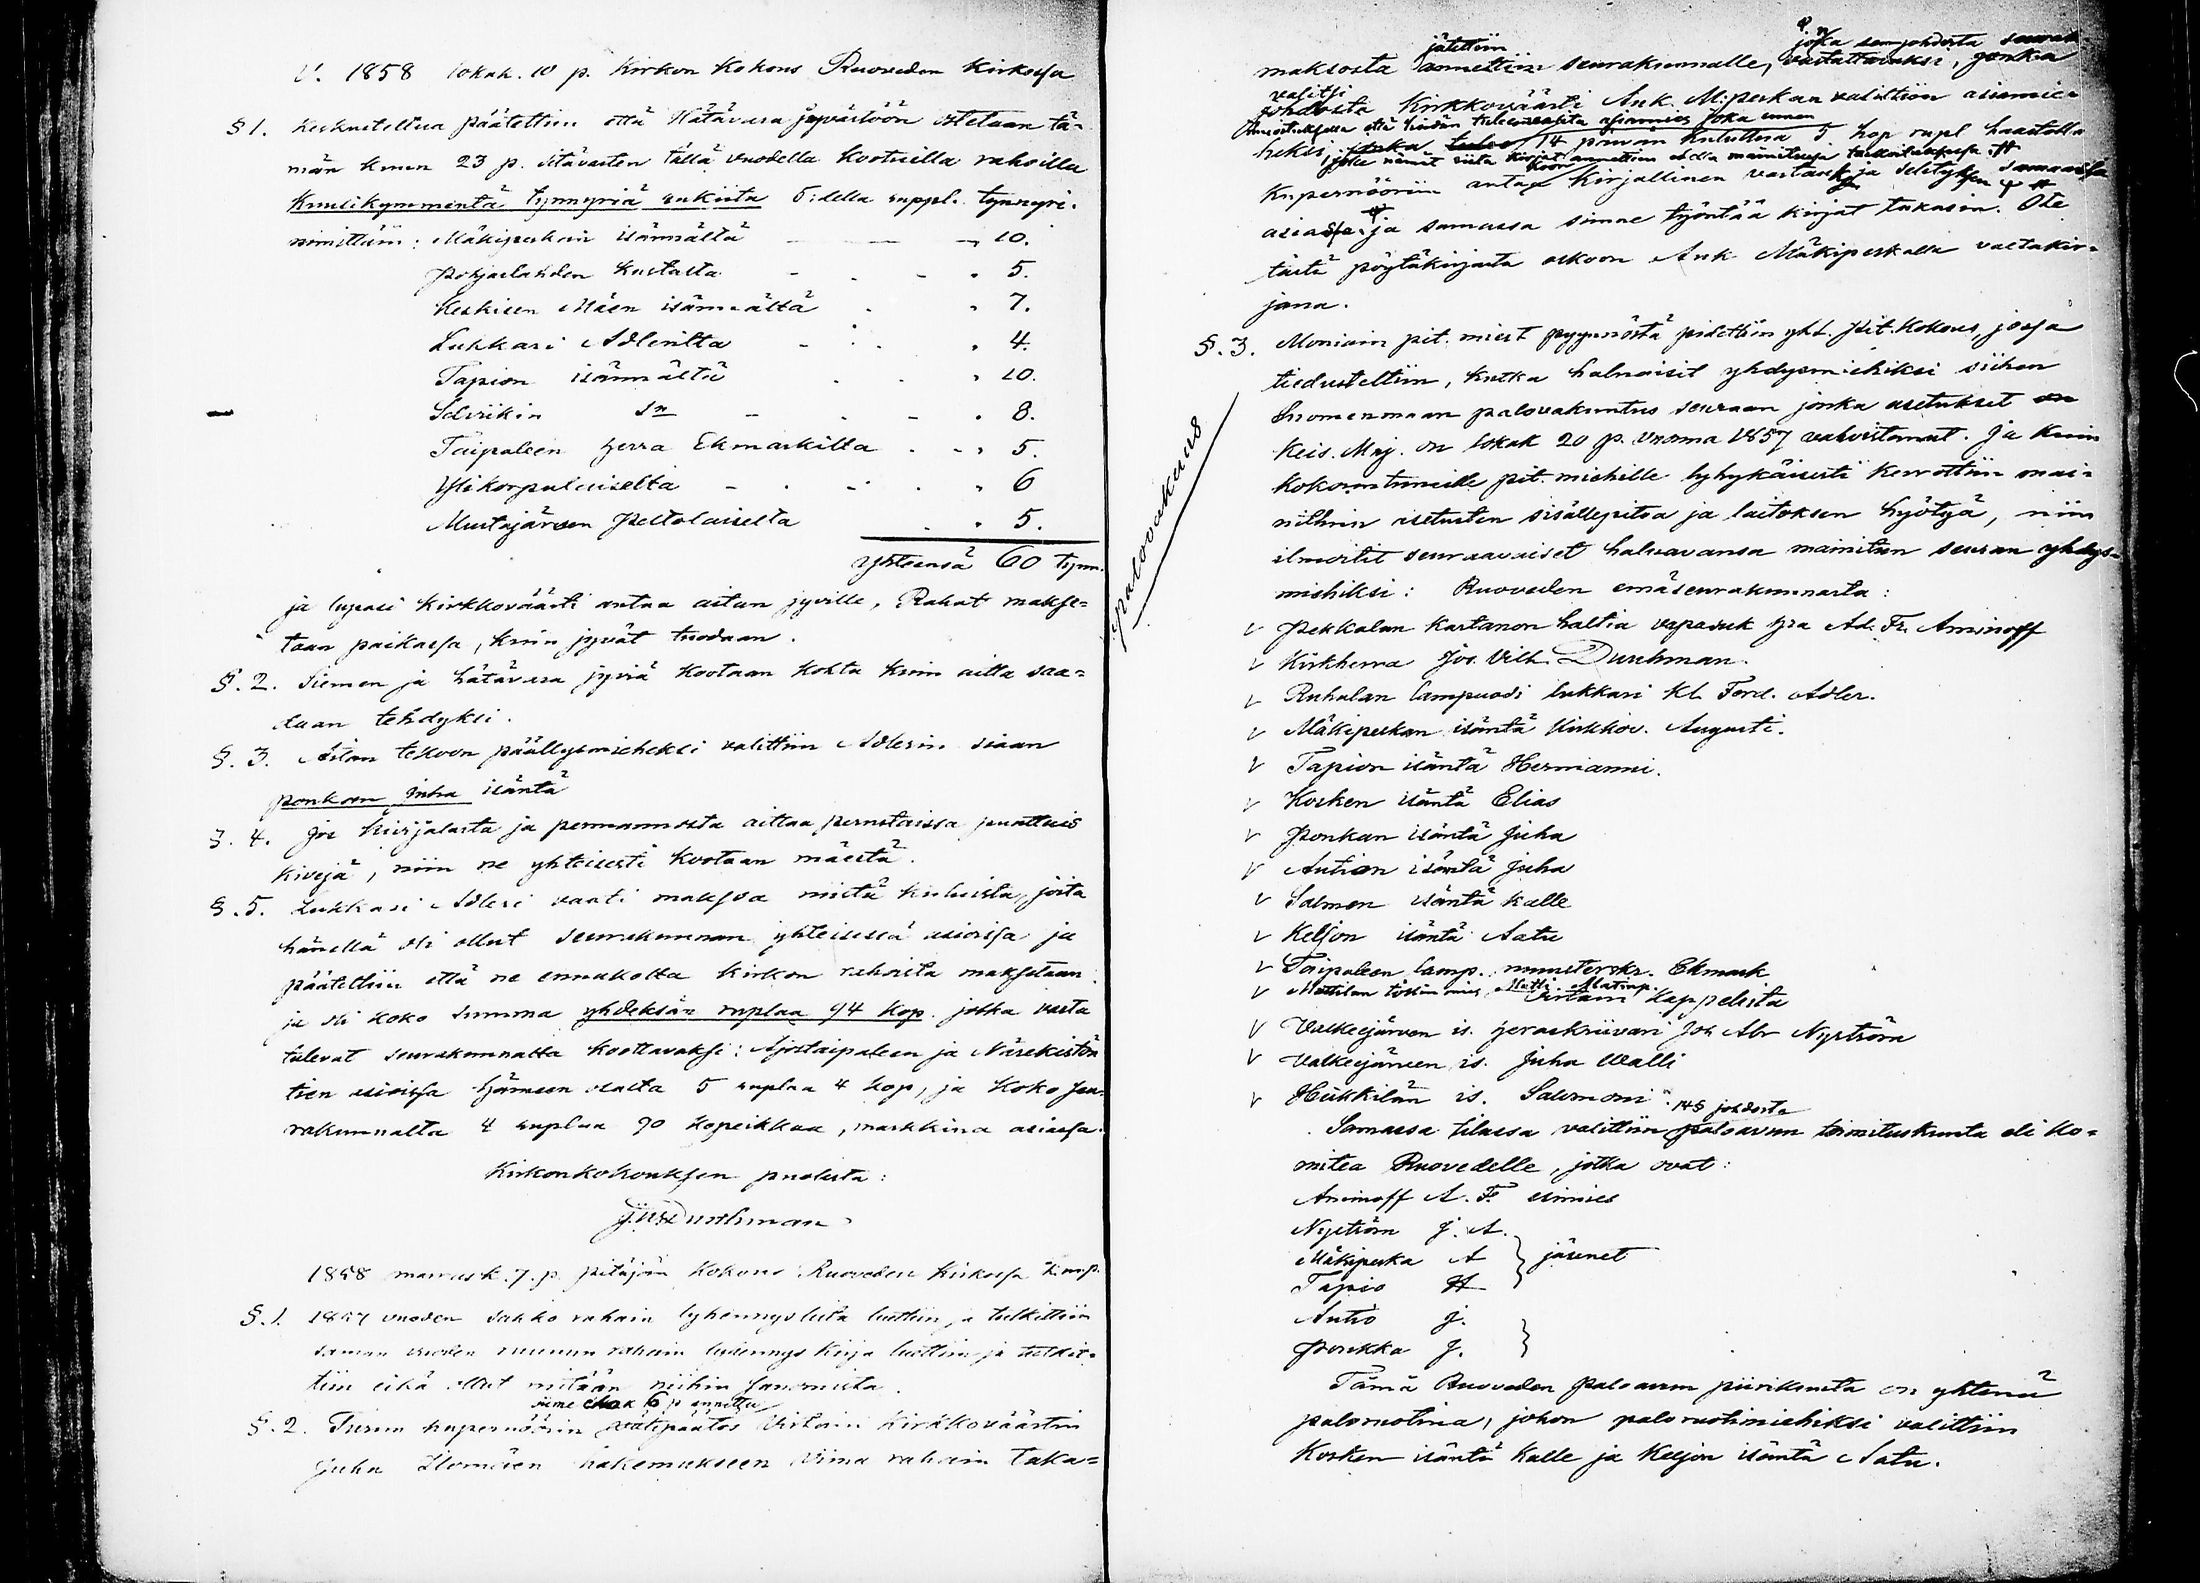 V. 1858 lokak. 10 p. Kirkon Kokous Ruoveden Kirkossa
§ 1. Keskusteltua päätettiin että Hätävara jyvästöön ostetaan tä-
män kuun 23 p. sitävasten tällä vuodella kootuilla rahoilla
Kuusikymmentä tynnyriä rukiita 5:della ruppl. tynnyri.
nimittäin: Mäkipeskan isännältä — — „ 10.
Pohjaslahden Kustasta - - - „ 5.
Keskisen Mäen isännältä - „ 7.
Lukkari Adlerilta - - - „ 4.
Tapion isännältä - - „ 10.
Selviikin Sn - - - „ 8.
Taipaleen herra Ekmarkilta - „ 5.
Ylikorpulaiselta - - - - „ 6
Mustajärven Peltolaiselta - „ 5.
Yhteensä 60 tynn.
ja lupasi Kirkkoväärti antaa aitan jyville, Rahat makse-
taan paikassa, kuin jyvät tuodaan.
§. 2. Siemen ja hätävara jyviä kootaan kohta kuin aitta saa-
daan tehdyksi.
§. 3. Aitan tekoon päällysmieheksi valittiin Adlerin siaan
Ponkan Juha isäntä
§. 4. Jos kivijalasta ja permannosta aittaa perustaissa puuttuis
kivejä, niin ne yhteisesti kootaan mäestä.
§. 5. Lukkari Adleri vaati maksoa niistä kuluista, joita
hänellä oli ollut seurakunnan yhteisessä asioissa ja
päätettiin että ne ennakolta kirkon rahoista maksetaan
ja oli koko summa yhdeksän ruplaa 94 kop. jotka vasta
tulevat seurakunnalta koottavaksi: Ajostaipaleen ja Närekistön
tien asioissa Hämeen osalta 5 ruplaa 4 kop, ja koko seu-
rakunnalta 4 ruplaa 90 kopeikkaa, markkina asiassa.
Kirkonkokouksen puolesta:
J.W.Durchman
1858 marrask. 7. p. pitäjän Kokous Ruoveden Kirkossa
§. 1. 1857 vuoden sakko rahain lyhennyslista luettiin ja tutkittiin
saman vuoden ruunun rahain lyhennys kirja luettiin ja tutkit-
tiin eikä ollut mitään niihin sanomista.
viime elok 6 p annettu
§. 2. Turun kupernöörin välipäätös Virtain Kirkkoväärtin
Juha hakemukseen viina rahain taka-
jätettiin jotka senjohdosta seurak-
maksosta annettiin seurakunnalle, vastattavaksi, jonka
valitsi
johdosta Kirkkoväärti Auk. M:peskan valittiin asiamie-
joka ennen
heksi 14 päivän kuluttua 5 hop rupl haastolla
Kupernööriin antaa Kirjallinen vastaus ja selityksen samassa
asiassa ja samassa sinne työntää kirjat takasin. Ote
tästä pöytäkirjasta olkoon Auk Mäkipeskalla valtakir-
jana.
§. 3. Moniain pit. miest pyynnöstä pidettiin yht. pit. Kokous, jossa
tiedusteltiin, kutka haluaisit yhdysmiehiksi siihen
Suomenmaan palovakuutus seuraan jonka asetukset on
Keis. Maj. on lokak 20 p. vuonna 1857 vahvistanut. Ja kuin
kokoontuneille pit. miehille lyhykäisesti kerrottiin mai-
nittuin asetusten sisällepitoa ja laitoksen hyötyä, niin
ilmoitit seuraavaiset haluavansa mainitun seuran yhdys-
miehiksi: Ruoveden emäseurakunnasta:
Palovakuus
v Pekkalan kartanon haltia vapasuk hra Ad. Fr. Aminoff
v Kirkherra Jos. Vilh. Durchman.
v Ruhalan lampuodi lukkari Kl. Ferd. Adler.
v Mäkipeskan isäntä Kirkkov. Augusti.
v Tapion isäntä Hermanni.
v Kosken isäntä Elias
v Ponkan isäntä Juha
v Aution isäntä Juha
v Salmen isäntä Kalle
v Keljon isäntä Aatu
v Taipaleen lamp. munsterskr. Ekmark
v Mattilan töllin mies Matti Matinp. Virtain kappelista
v Valkeejärven is. heraskriivari Joh Abr Nyström
v Valkeejärven is. Juha Walli
v Heikkilän is. Salomoni
14§ johdosta
Samassa tilassa valittiin paloavun toimituskunta eli ko-
mitea Ruovedelle, jotka ovat:
Aminoff A. F. esimies
Nyström J. A.
Mäkipeska A } jäsenet
Tapio H
Autio J.
Ponkka J. }
Tämä Ruoveden paloavun piirikunta on yhtenä
palorootina, johon palorootimiehiksi valittiin
Kosken isäntä Kalle ja Keljon isäntä Aatu.